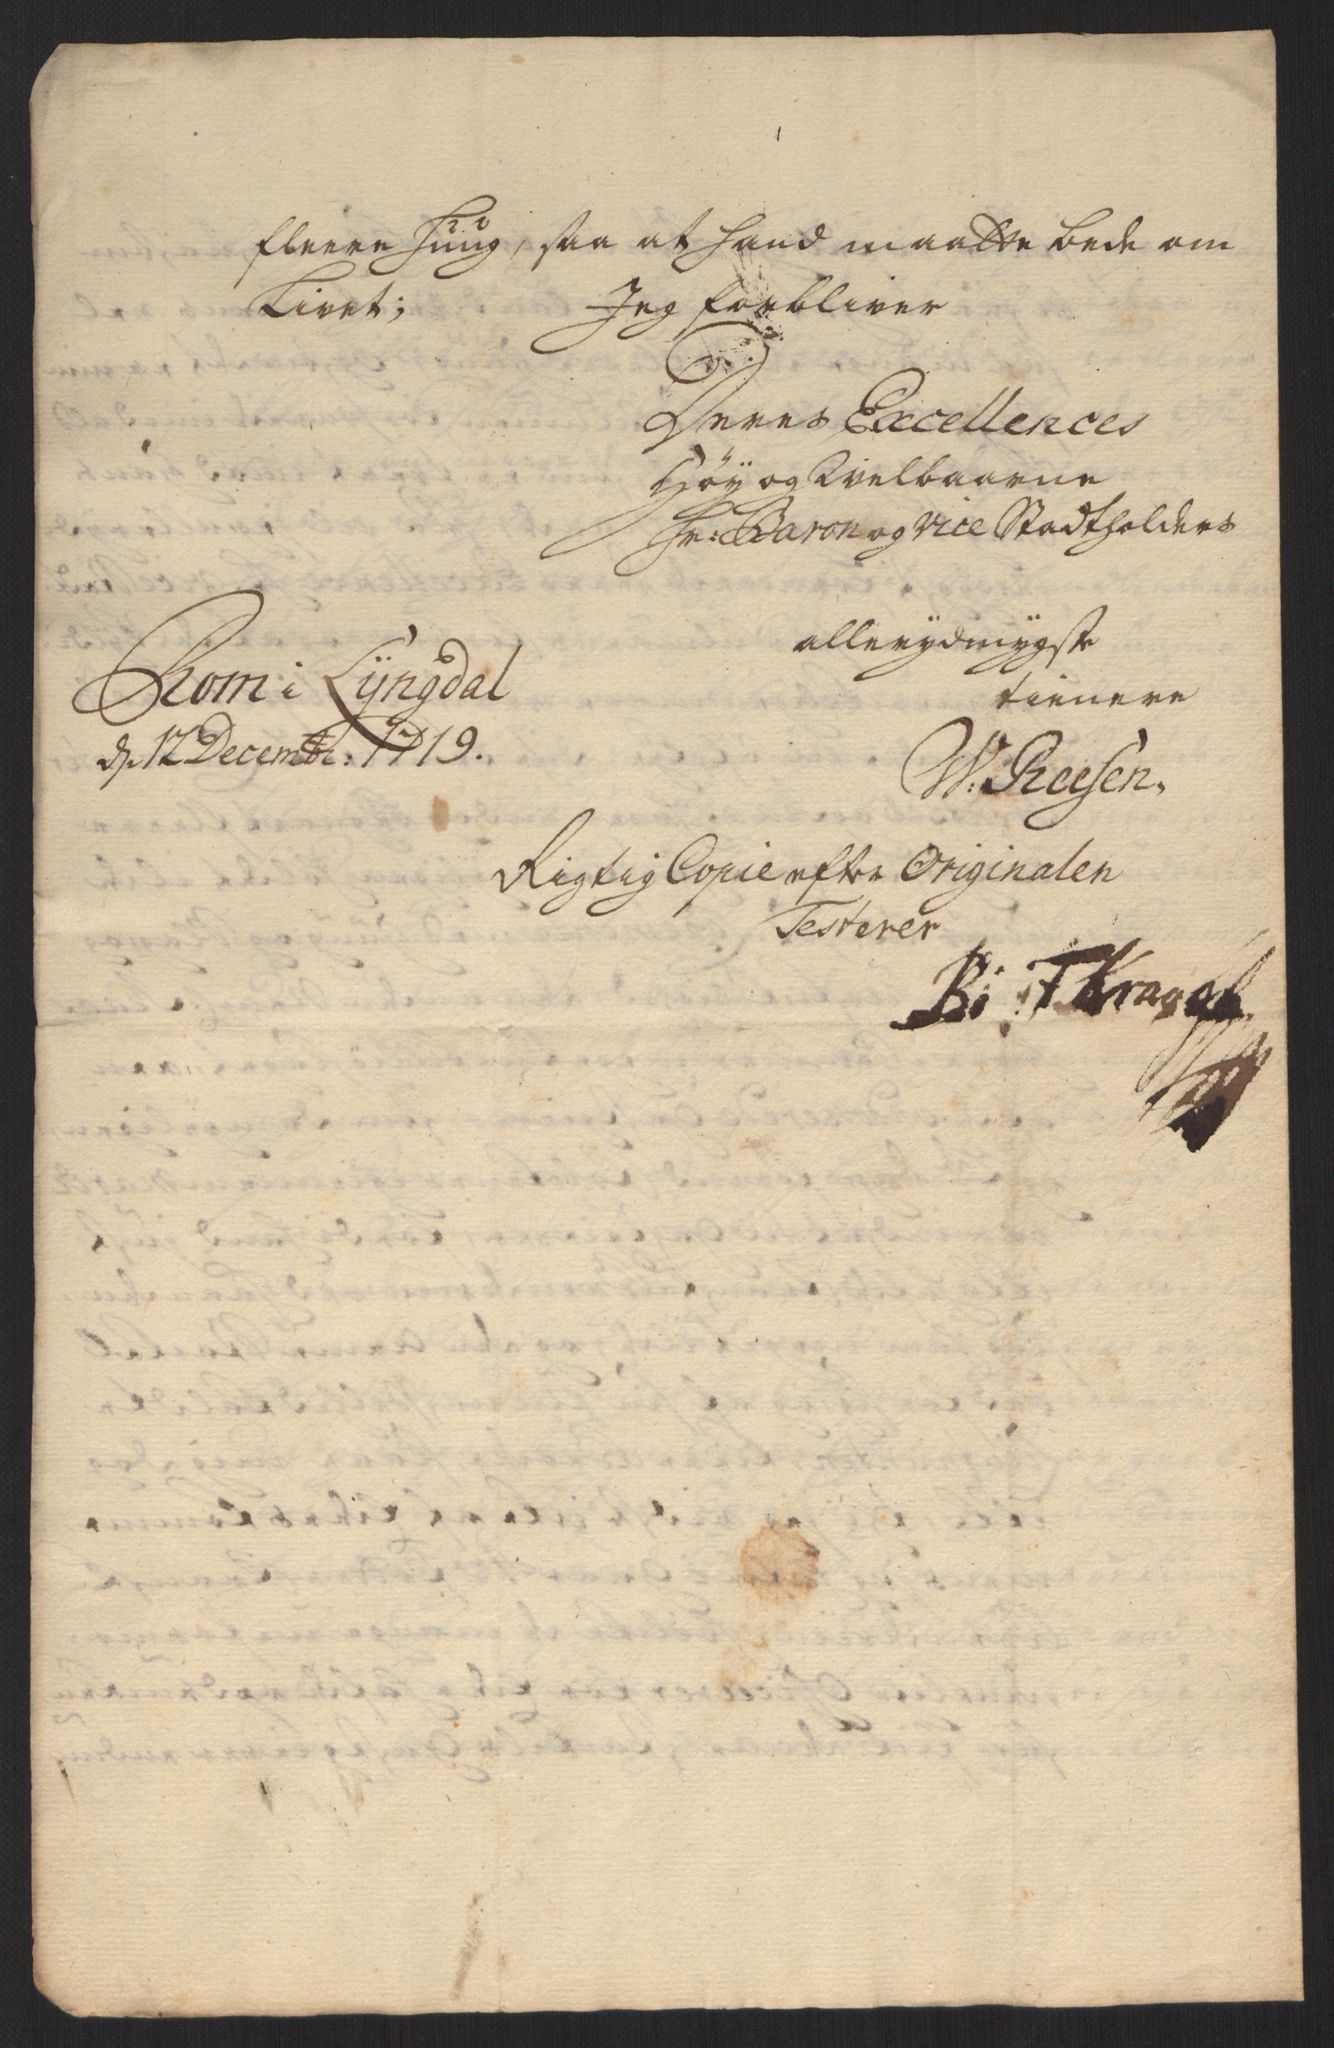 fleere Huug, saa at hand maatte bede om
Livet; Jeg forbliver
Deres Excellences
Höy og Velbaarne
Hr: Baron og Vice Stadtholders
allerydmygste
tienere
Rom i Lÿngdal
d. 12 Decembr: 1719.
W: Reesen.
Rigtig Copie efter Originalen
Testerer
T Kragh